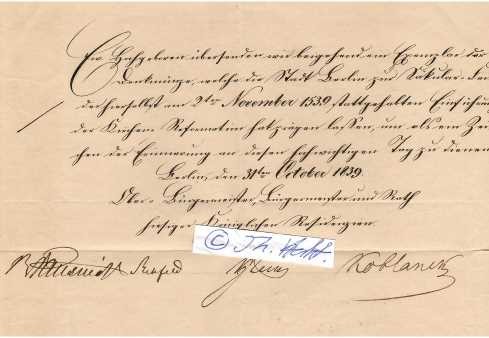 Ew Hochgeboren übersenden wir beigehend ein Exemplar der
Denkmünze, welche die Stadt Berlin zur Säkular-Fei
der hierselbst am 2ten November 1539 stattgehabten Einführung
der Kirchen-Reformation hat prägen lassen, um als ein Zei
chen der Erinnerung an diesen hochwichtigen Tag zu dienen
Berlin, den 31ten October 1839.
Ober-Bürgermeister, Bürgermeister und Rath
hiesiger Königlichen Residenzien.
© Th.
Koblanck